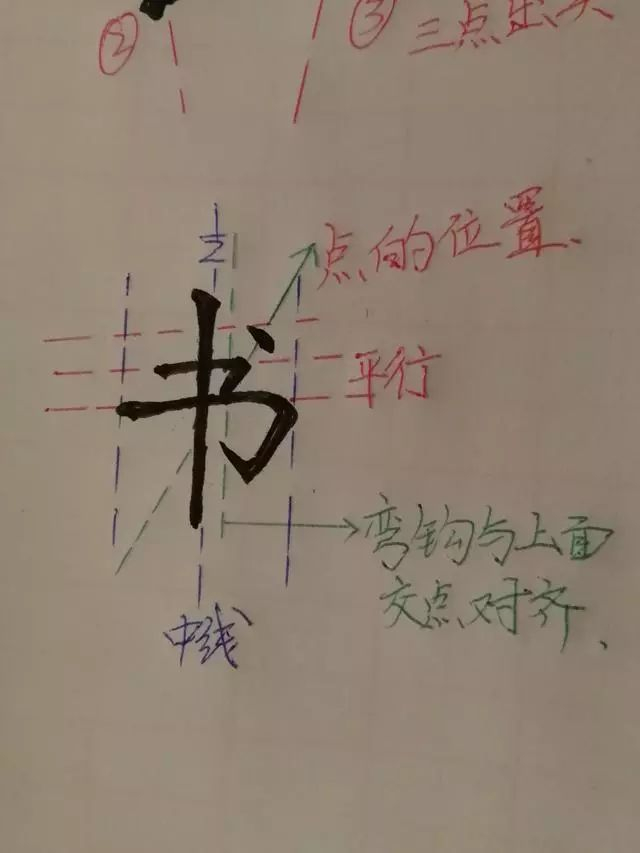 ② ③
三点出头
1/2
点的位置、
书
平行
弯钩与上面
交点对齐、
中线